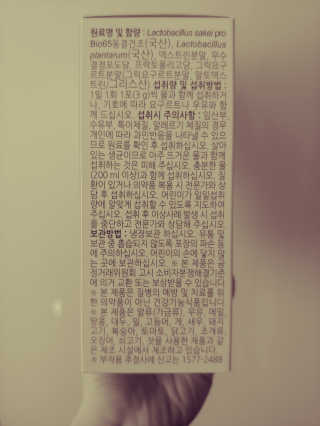 원료명 및 함량 : Lactobacillus sakei pro
Bio65동결건조(국산), Lactobacillus
plantarum(국산), 덱스트린분말, 무수
결정포도당, 프락토올리고당, 그릭요구
르트분말(그릭요구르트분말, 말토덱스
트린/그리스산) 섭취량 및 섭취방법 :
1일 1회 1포(3 g)씩 물과 함께 섭취하거
나, 기호에 따라 요구르트나 우유와 함
께 드십시오. 섭취시 주의사항 : 임산부,
수유부, 특이체질, 알레르기 체질의 경우
개인에 따라 과민반응을 나타낼 수 있으
므로 원료를 확인 후 섭취하십시오. 살아
있는 생균이므로 아주 뜨거운 물과 함께
섭취하는 것은 피해 주십시오. 충분한 물
(200 ml 이상)과 함께 섭취하십시오. 질
환이 있거나 의약품 복용 시 전문가와 상
담 후 섭취하십시오. 어린이가 일일섭취
량에 알맞게 섭취할 수 있도록 지도하여
주십시오. 섭취 후 이상사례 발생 시 섭취
를 중단하고 전문가와 상담해 주십시오.
보관방법 : 냉장보관 하십시오. 유통 및
보관 중 흡습되지 않도록 포장의 파손 등
에 주의하십시오. 어린이의 손에 닿지 않
는 곳에 보관하십시오. ※ 본 제품은 공
정거래위원회 고시 소비자분쟁해결기준
에 의거 교환 또는 보상받을 수 있습니다.
※ 본 제품은 질병의 예방 및 치료를 위
한 의약품이 아닌 건강기능식품입니다.
※ 본 제품은 알류(가금류), 우유, 메밀,
땅콩, 대두, 밀, 고등어, 게, 새우, 돼지
고기, 복숭아, 토마토, 닭고기, 조개류,
오징어, 쇠고기, 잣을 사용한 제품과 같
은 제조 시설에서 제조하고 있습니다.
※ 부작용 추정사례 신고는 1577-2488